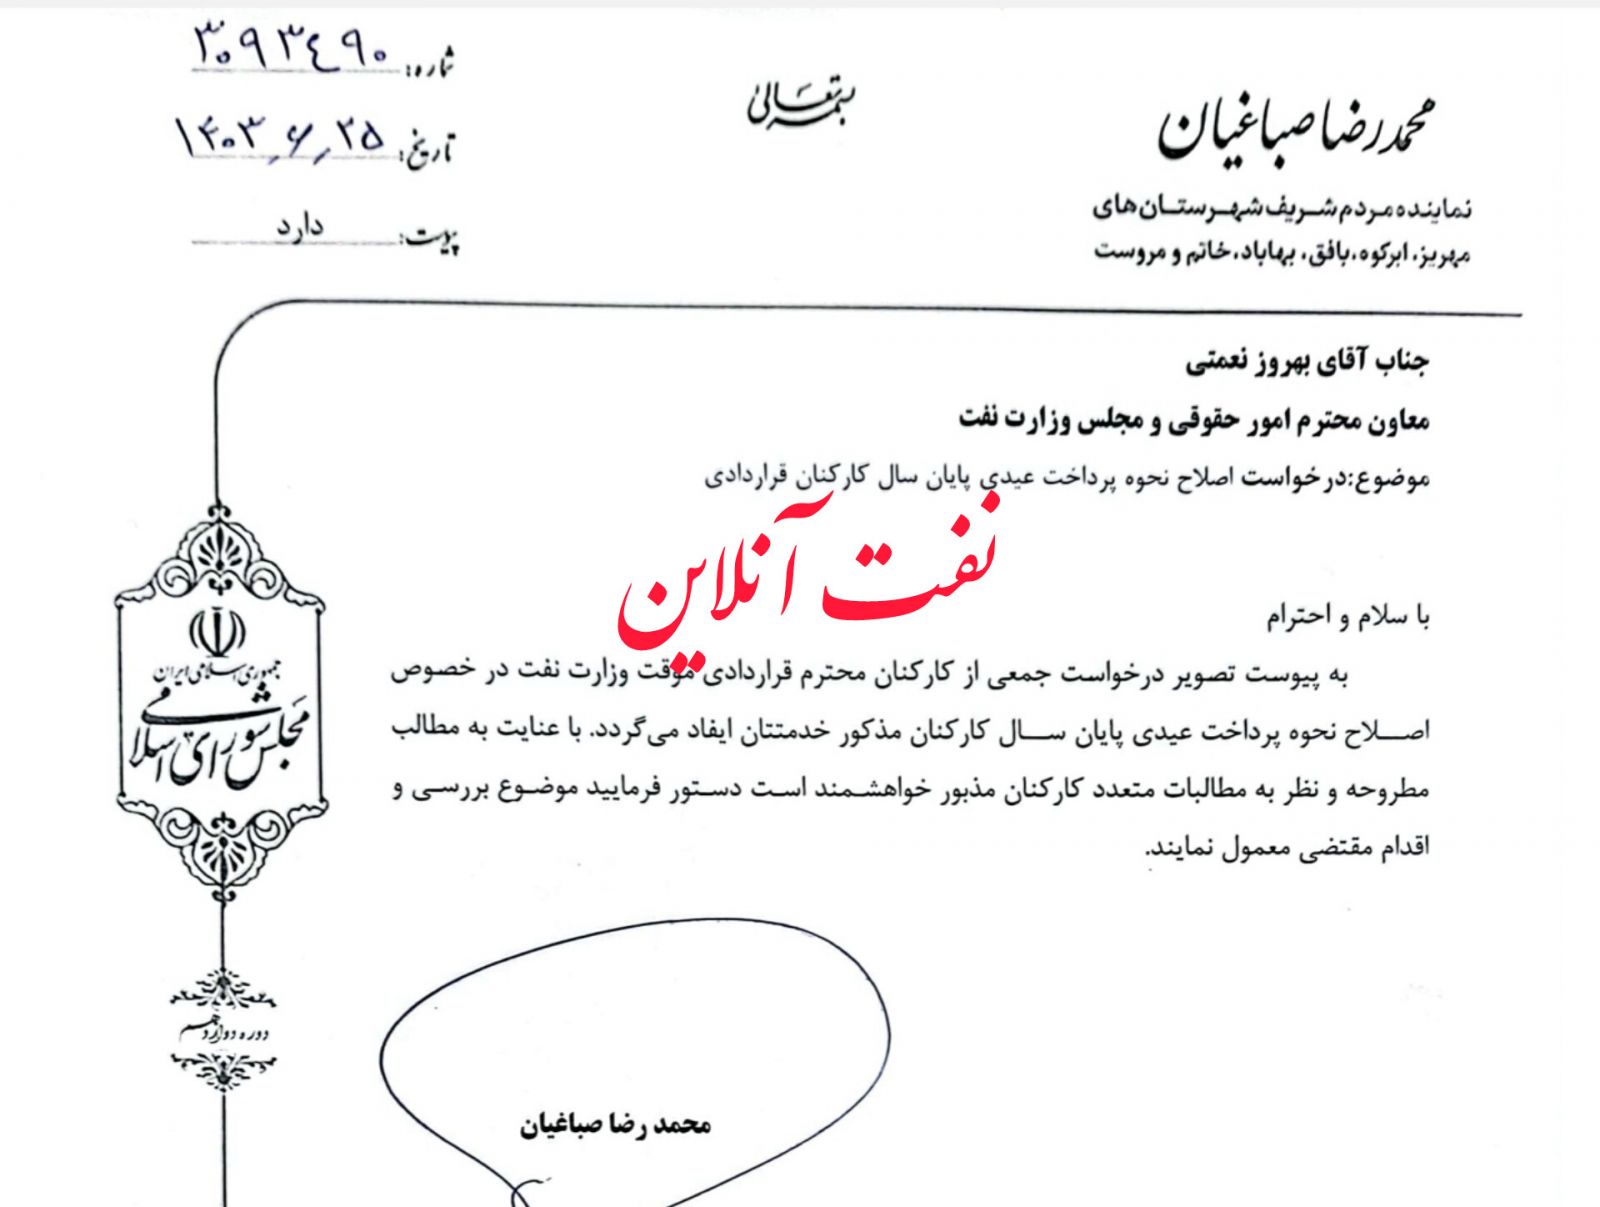 بسمه تعالی
محمدرضا صباغیان
نماینده مردم شریف شهرستان‌های
مهریز، ابرکوه، بافق، بهاباد، خاتم و مروست
شماره: ۳۰۹۳۴۹۰
تاریخ: ۱۴۰۳,۶,۲۵
پیوست: دارد
جناب آقای بهروز نعمتی
معاون محترم امور حقوقی و مجلس وزارت نفت
موضوع:درخواست اصلاح نحوه پرداخت عیدی پایان سال کارکنان قراردادی
نفت آنلاین
با سلام و احترام
به پیوست تصویر درخواست جمعی از کارکنان محترم قراردادی موقت وزارت نفت در خصوص
اصلاح نحوه پرداخت عیدی پایان سال کارکنان مذکور خدمتتان ایفاد می‌گردد. با عنایت به مطالب
مطروحه و نظر به مطالبات متعدد کارکنان مذبور خواهشمند است دستور فرمایید موضوع بررسی و
اقدام مقتضی معمول نمایند.
جمهوری اسلامی ایران
مجلس شورای اسلامی
دوره دوازدهم
محمد رضا صباغیان